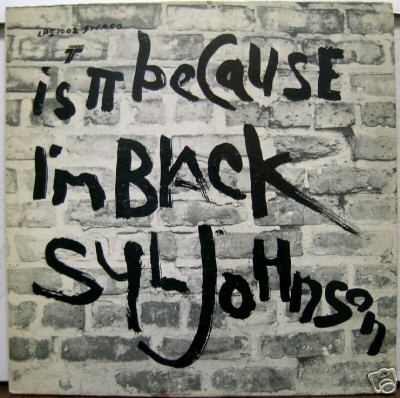 LPS 1002 STEREO
is iT beCAUSE
I'm BLACK
SYL JoHnson